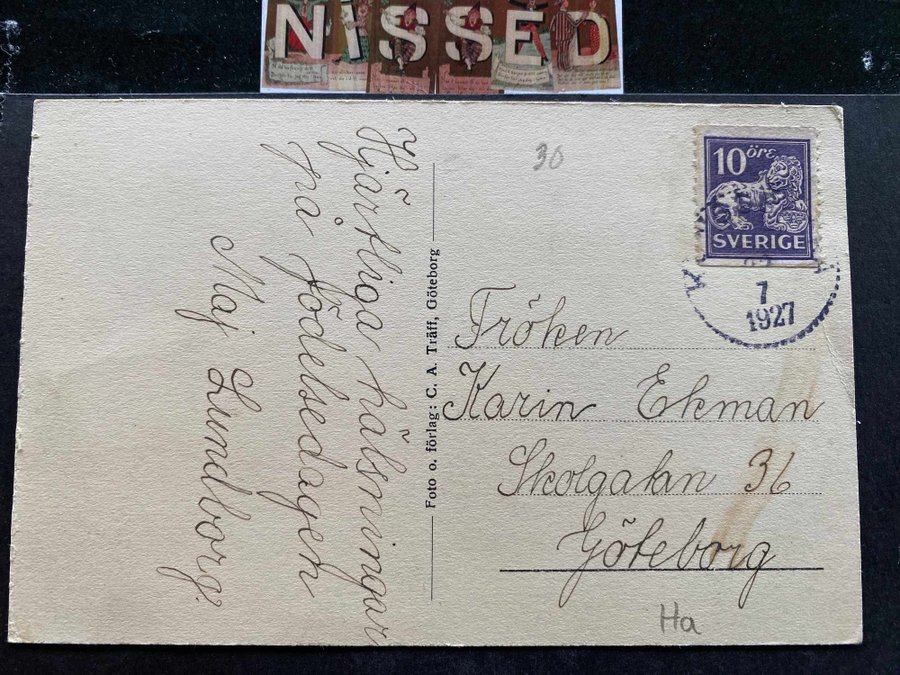 NISSED
30
10 öre
SVERIGE
7
1927
Hjärtliga hälsningar
på födelsedagen
Maj Lundborg.
Foto o. förlag: C. A. Träff, Göteborg
Fröken
Karin Ekman
Skolgatan 36
Göteborg
Ha